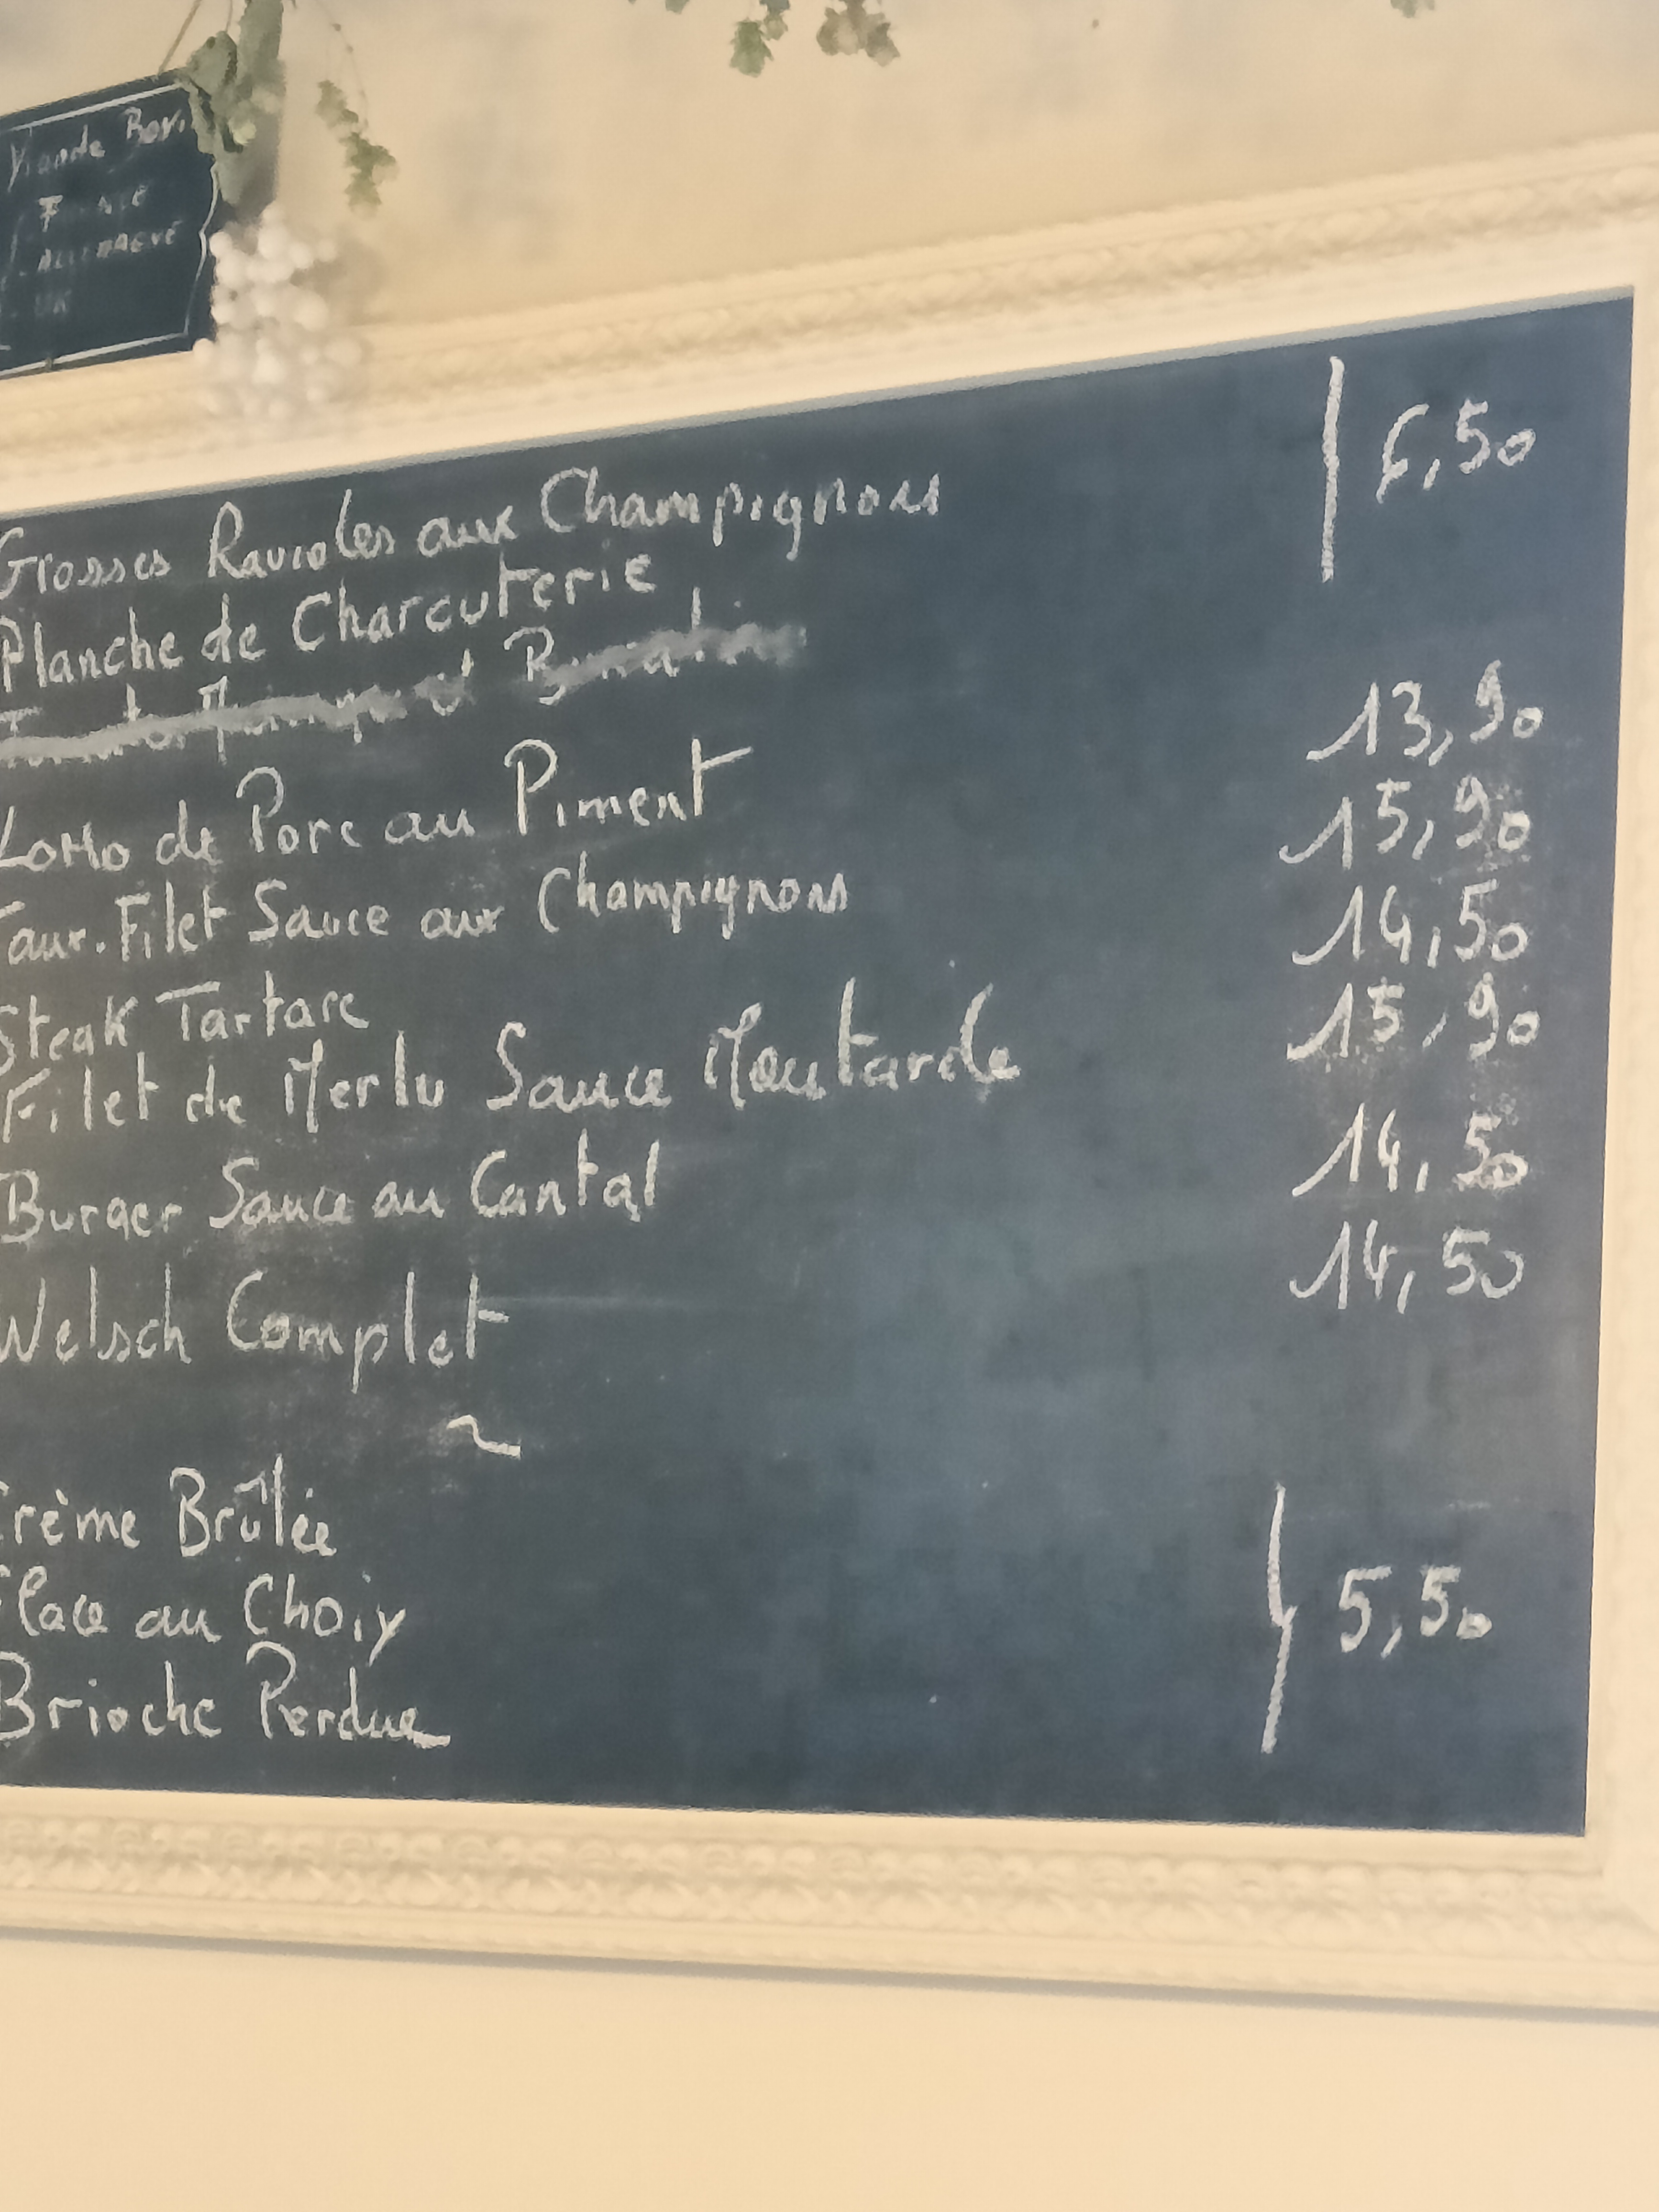 Viande Bovi
ALLEMAGNE
UK
Grosses Ravioles aux Champignons
6,50
Planche de Charcuterie
Lomo de Porc au Piment 13,90
Faux-Filet Sauce aux Champignons 15,90
Steak Tartare 14,50
Filet de Merlu Sauce Moutarde 15,90
Burger Sauce au Cantal 14,50
Welsch Complet 14,50
~
Crème Brûlée
Glace au Choix 5,50
Brioche Perdue